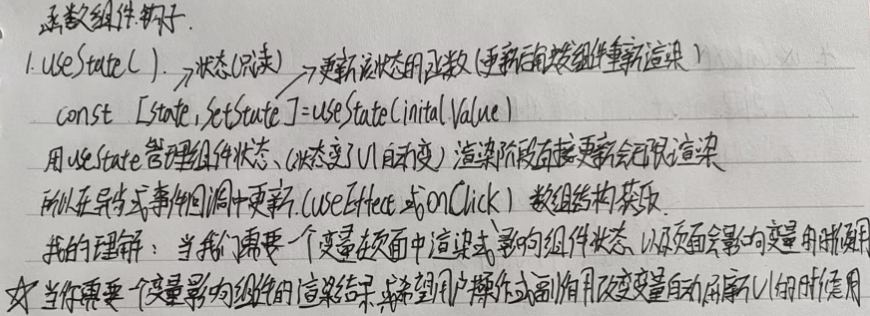 函数组件钩子.
1. useState( ). →状态(只读) →更新该状态的函数(更新后触发组件重新渲染)
const [state, setState]=useState(inital Value)
用useState管理组件状态、(状态变了UI自动变) 渲染阶段直接更新会无限渲染
所以在异步或事件回调中更新.(useEffect 或 onClick) 数组结构获取.
我的理解: 当我们需要一个变量在页面中渲染或影响组件状态、以及页面会影响变量的时候使用
☆当你需要一个变量影响组件的渲染结果、或希望用户操作或副作用改变变量自动刷新UI的时候使用